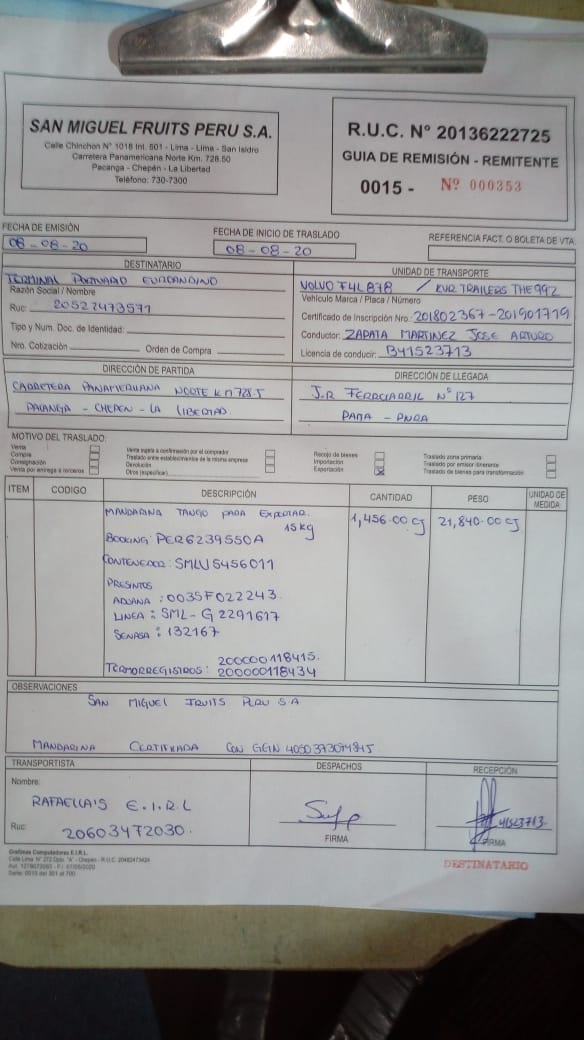 SAN MIGUEL FRUITS PERU S.A.
Calle Chinchon N° 1018 Int. 501 - Lima - Lima - San Isidro
Carretera Panamericana Norte Km. 728.50
Pacanga - Chepén - La Libertad
Teléfono: 730-7300
R.U.C. N° 20136222725
GUIA DE REMISIÓN - REMITENTE
0015 - Nº 000353
FECHA DE EMISIÓN
08-08-20
FECHA DE INICIO DE TRASLADO
08-08-20
REFERENCIA FACT. O BOLETA DE VTA.
DESTINATARIO
TERMINAL PORTUARIO EUROANDINO
Razón Social / Nombre
Ruc: 20522473571
Tipo y Num. Doc. de Identidad:
Nro. Cotización Orden de Compra
UNIDAD DE TRANSPORTE
VOLVO F4L878 / KUR TRAILERS THE992
Vehículo Marca / Placa / Número
Certificado de Inscripción Nro. 201802367-201901719
Conductor: ZAPATA MARTINEZ JOSE ARTURO
Licencia de conducir: B41523713
DIRECCIÓN DE PARTIDA
CARRETERA PANAMERICANA NORTE KM 728.5
PACANGA - CHEPEN - LA LIBERTAD
DIRECCIÓN DE LLEGADA
J.R FERROCARRIL N° 127
PAITA - PIURA
MOTIVO DEL TRASLADO:
Venta
Compra
Consignación
Venta por entrega a terceros
Venta sujeta a confirmación por el comprador
Traslado entre establecimientos de la misma empresa
Devolución
Otros (especificar)
Recojo de bienes
Importación
Exportación
Traslado zona primaria
Traslado por emisor itinerante
Traslado de bienes para transformación
ITEM CODIGO DESCRIPCIÓN CANTIDAD PESO UNIDAD DE MEDIDA
MANDARINA TANGO PARA EXPORTAR. 1,456.00 cj 21,840.00 cj
15 kg
BOOKING: PER6239550A
CONTENEDOR: SMLU5456011
PRESINTOS
ADUANA : 0035F022243.
LINEA : SML-G2291617
SENASA : 132167
200000118415.
TERMORREGISTROS: 200000118434
OBSERVACIONES
SAN MIGUEL FRUITS PERU S A
MANDARINA CERTIFICADA CON GGN
TRANSPORTISTA
Nombre:
RAFAELLA'S E.I.R.L
Ruc: 20603472030.
DESPACHOS
FIRMA
RECEPCIÓN
41523713.
FIRMA
Grafimax Computadores E.I.R.L.
Serie: 0015 del 301 al 700
DESTINATARIO